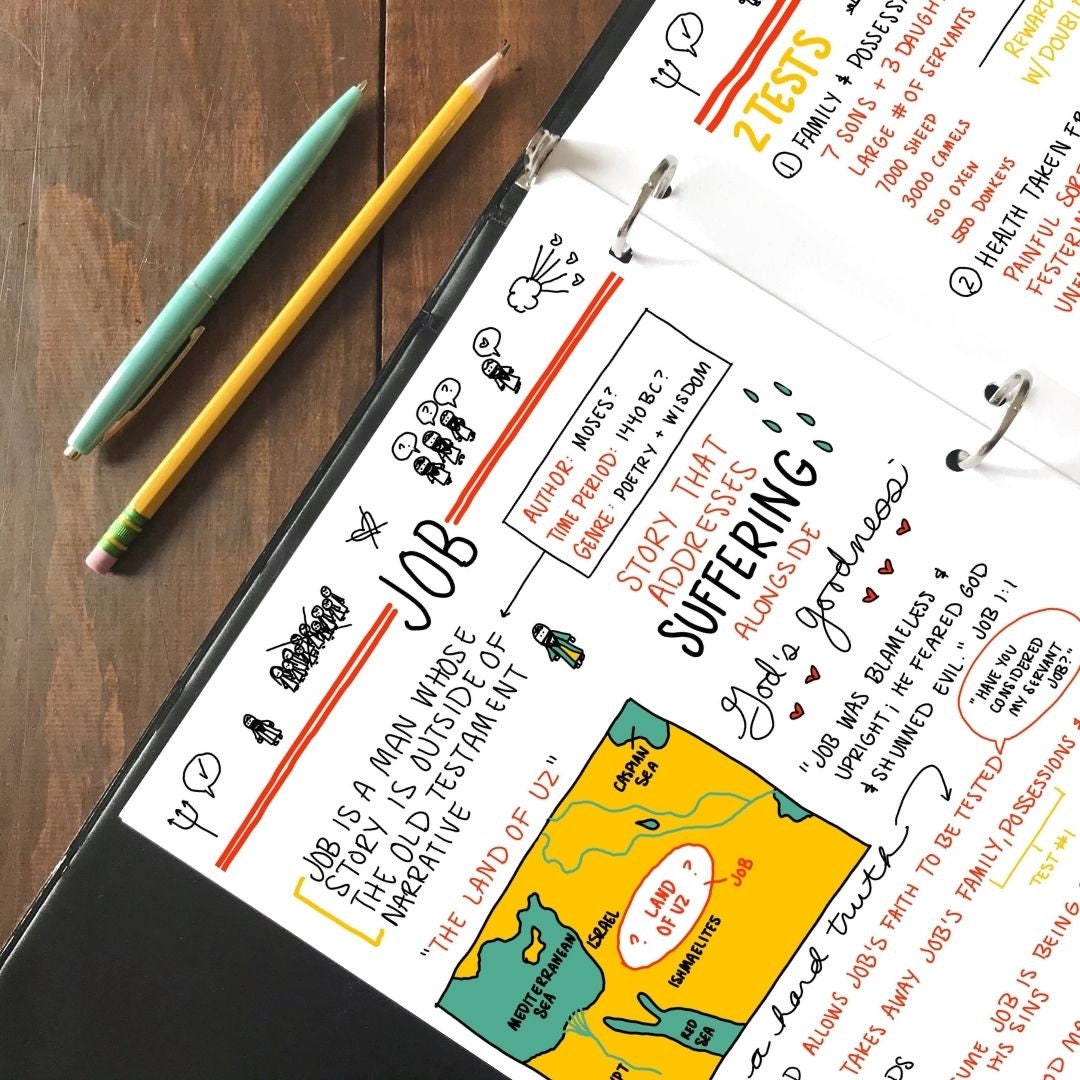 2 TESTS
① FAMILY & POSSESSI
7 SONS + 3 DAUGH
LARGE # OF SERVANTS
7000 SHEEP
3000 CAMELS
500 OXEN
500 DONKEYS
② HEALTH TAKEN FR
PAINFUL SOR
FESTERIN
UNE
REWARD
W/DOUBL
JOB
AUTHOR: MOSES?
TIME PERIOD: 1440 BC?
GENRE: POETRY + WISDOM
JOB IS A MAN WHOSE
STORY IS OUTSIDE OF
THE OLD TESTAMENT
NARRATIVE
STORY THAT
ADDRESSES
SUFFERING
ALONGSIDE
God's goodness:
"JOB WAS BLAMELESS &
UPRIGHT; HE FEARED GOD
& SHUNNED EVIL." JOB 1:1
"THE LAND OF UZ"
CASPIAN
SEA
? LAND ?
OF UZ
JOB
ISRAEL
ISHMAELITES
MEDITERRANEAN
SEA
RED
SEA
YPT
"HAVE YOU
CONSIDERED
MY SERVANT
JOB?"
a hard truth
D ALLOWS JOB'S FAITH TO BE TESTED
TAKES AWAY JOB'S FAMILY, POSSESSIONS &
TEST #1
DS
UME JOB IS BEING
HIS SINS